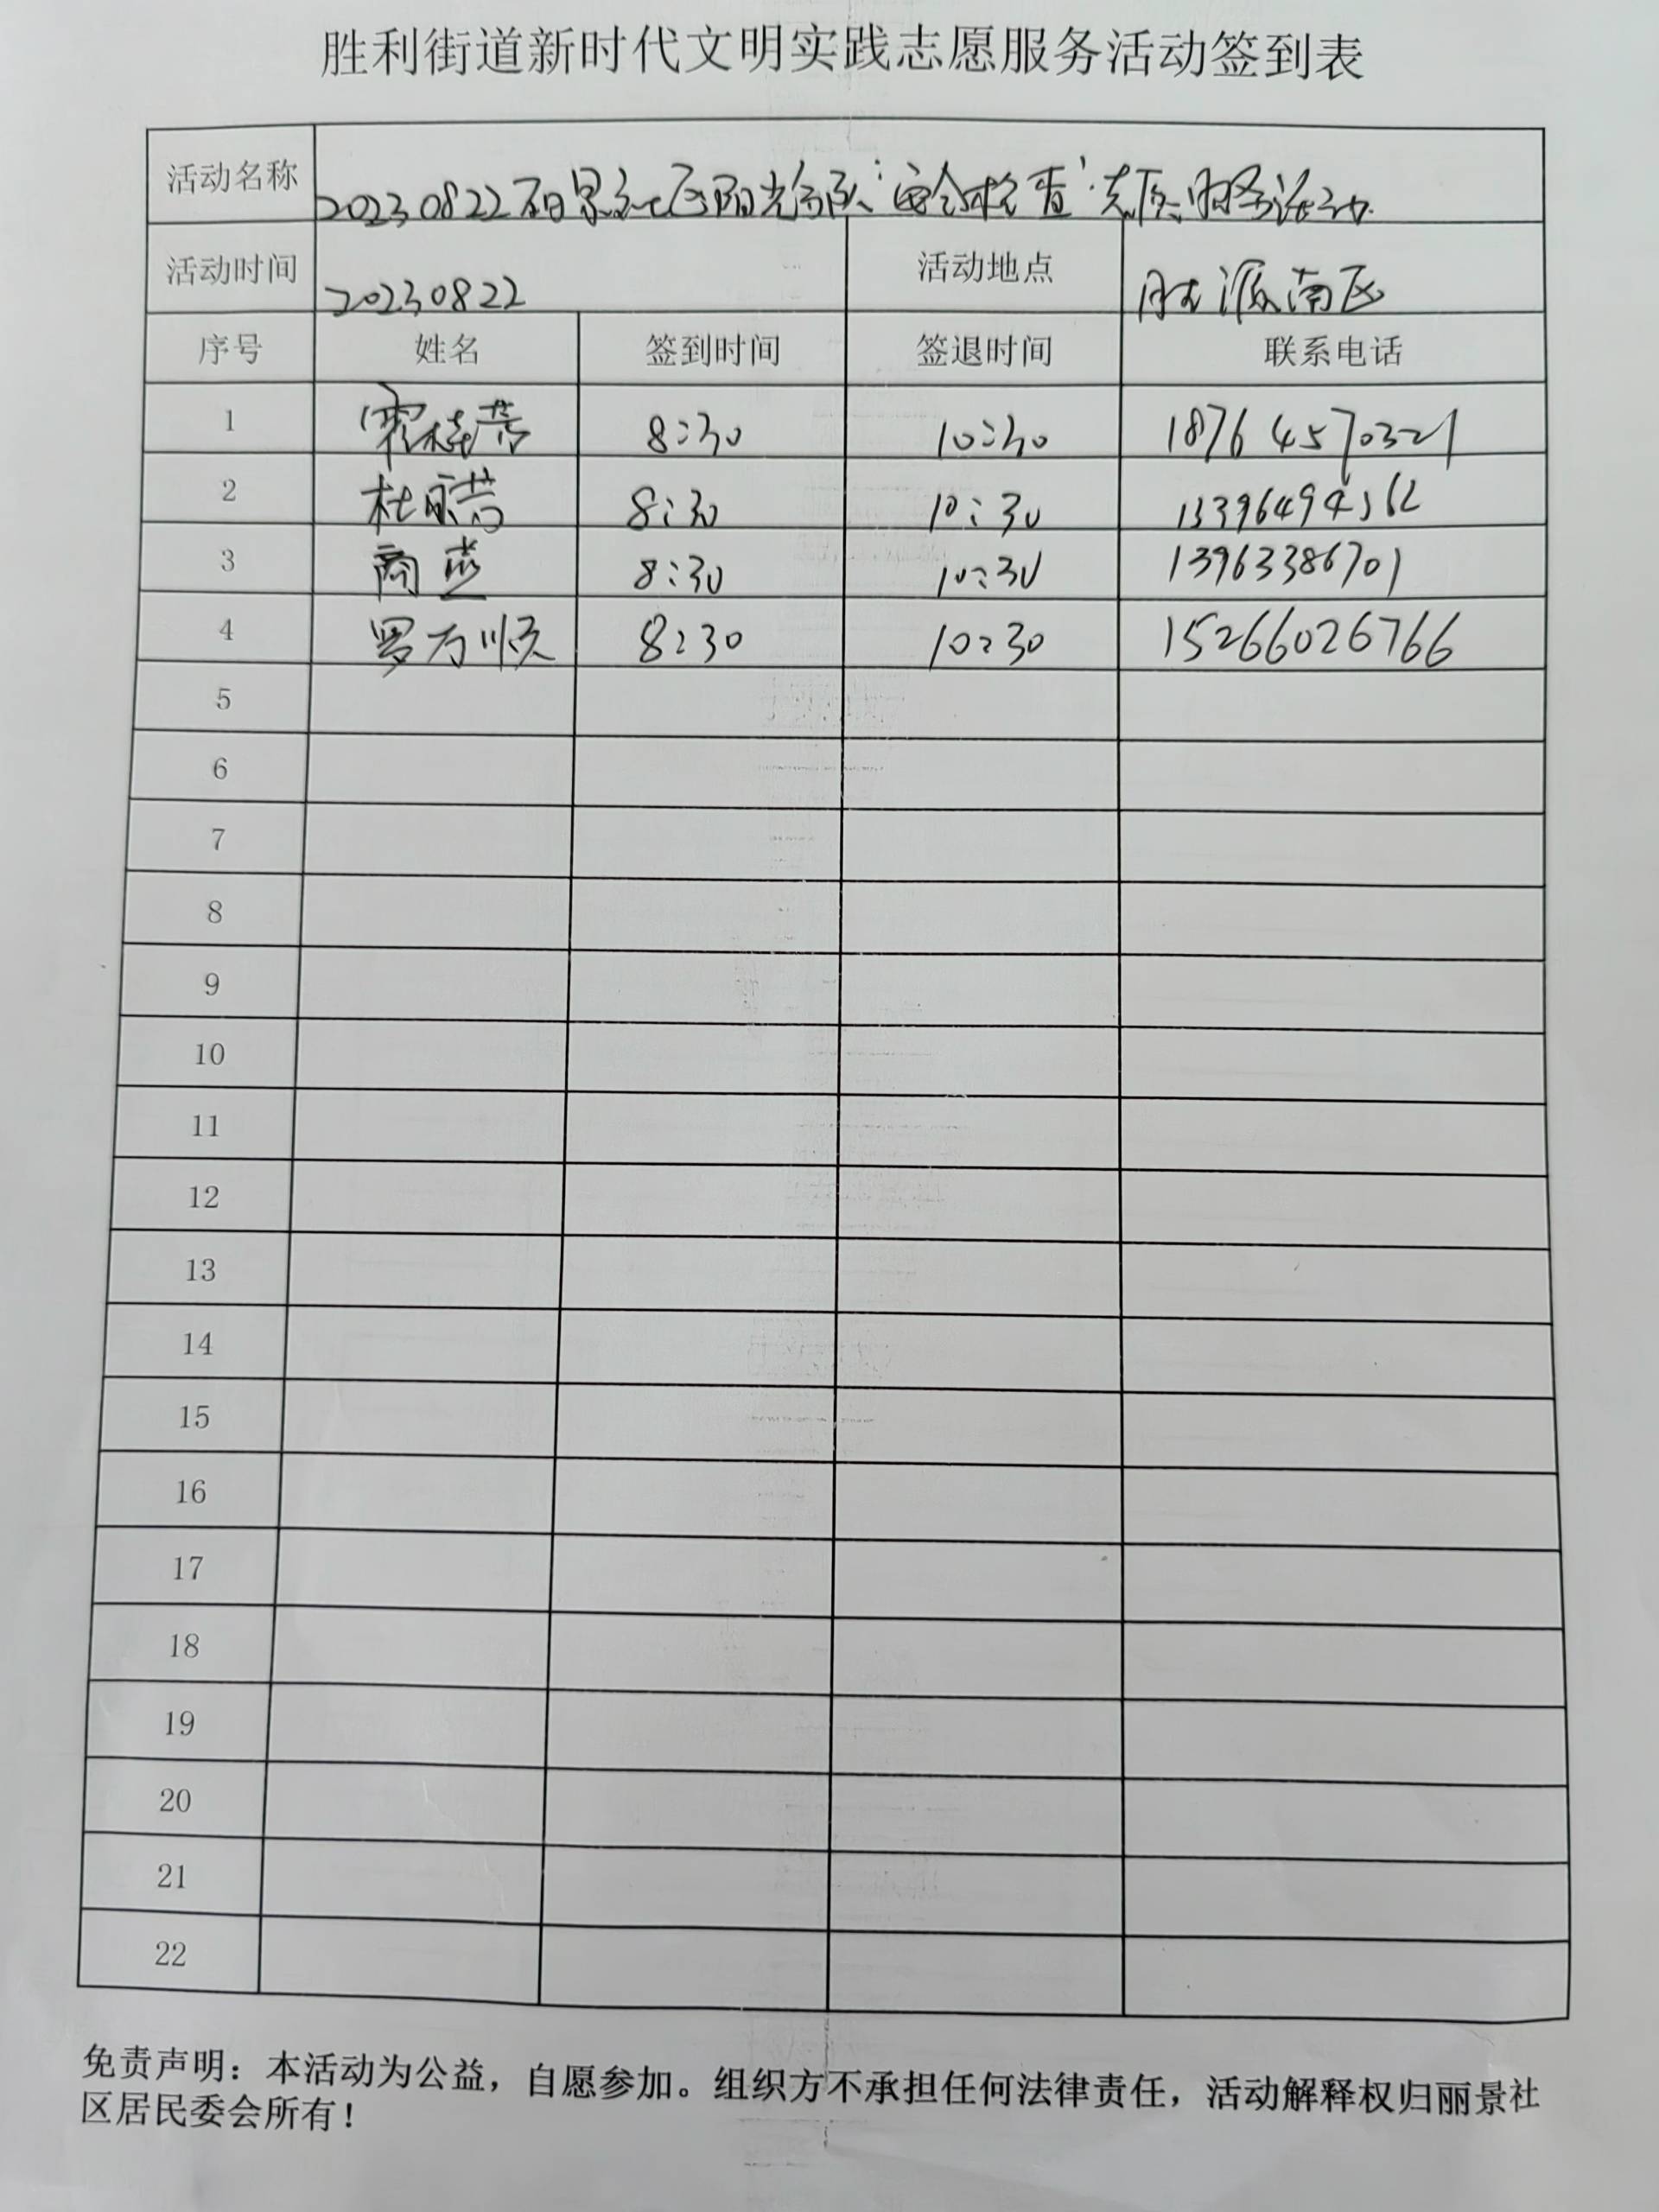 胜利街道新时代文明实践志愿服务活动签到表
活动名称 20230822丽景社区阳光分队“安全检查”志愿服务活动
活动时间 20230822 活动地点 胜源南区
序号 姓名 签到时间 签退时间 联系电话
1 8:30 10:30 18764570321
2 杜 8:30 10:30
3 商燕 8:30 10:30 13963386701
4 罗万顺 8:30 10:30 15266026766
5
6
7
8
9
10
11
12
13
14
15
16
17
18
19
20
21
22
免责声明：本活动为公益，自愿参加。组织方不承担任何法律责任，活动解释权归丽景社
区居民委会所有！